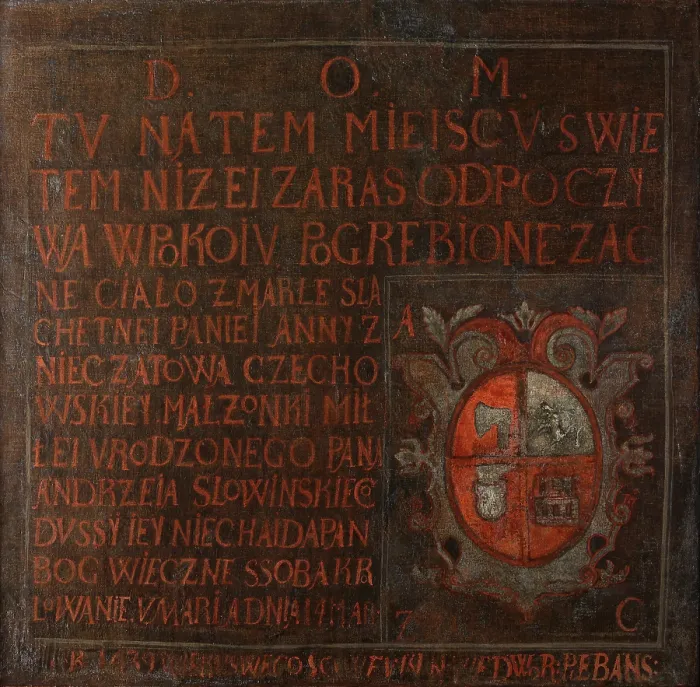 D. O. M.
TV NA TEM MIEISCV SWIE
TEM NIZEI ZARAS ODPOCZY
WA WPOKOIV POGREBIONE ZAC
NE CIALO ZMARLE SLA
CHETNEI PANIEI ANNY Z
NIECZATOWA CZECHO
WSKIEY MALZONKI MIŁ
ŁEI VRODZONEGO PANA
ANDRZEIA SLOWINSKIEGO
DVSSY IEY NIECHAI DA PAN
BOG WIECZNE SSOBA KRO
LOWANIE VMARŁA DNIA 14 MAR
A
C
PLEBANS: